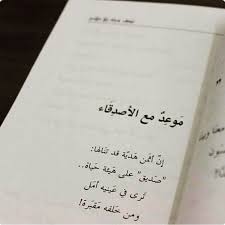 مَوعِدٌ مع الأصدِقَاء
إنّ أثمن هَديّة قد تنَالها:
"صَديق" على هَيئة حَياة..
تَرى في عَينيه أمَل
ومن خَلفه مَقبَرة!